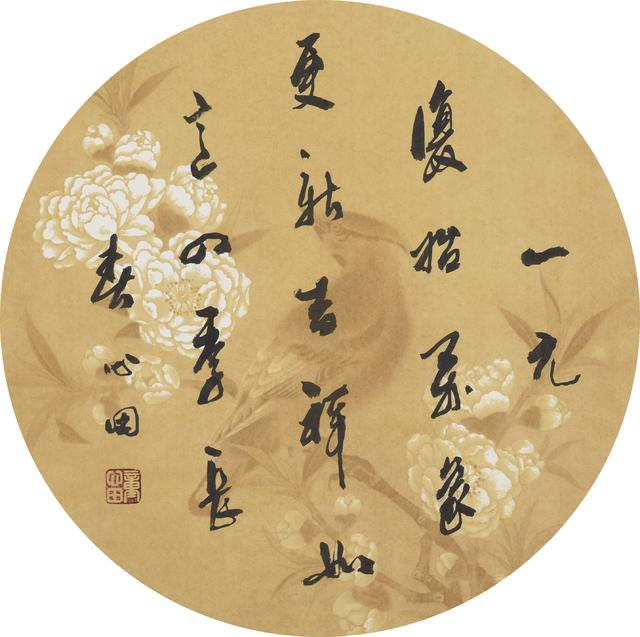 一元
復始萬象
更新吉祥如
意四季長
春 心田